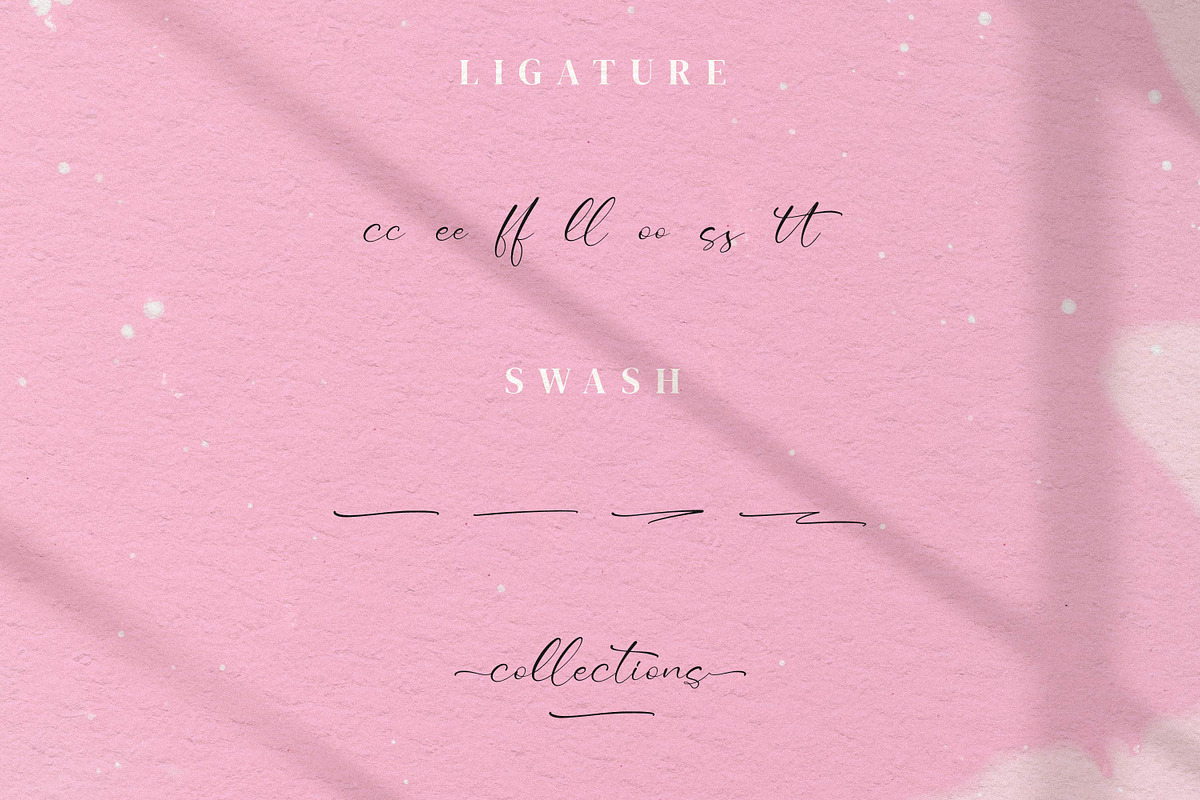 LIGATURE
cc ee ff ll oo ss tt
SWASH
collections